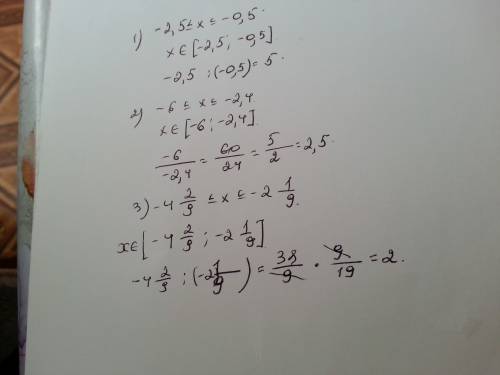 1) -2,5 ≤ x ≤ -0,5.
x ∈ [-2,5; -0,5]
-2,5 : (-0,5) = 5.
2) -6 ≤ x ≤ -2,4
x ∈ [-6; -2,4].
-6/-2,4 = 60/24 = 5/2 = 2,5.
3) -4 2/9 ≤ x ≤ -2 1/9.
x ∈ [-4 2/9; -2 1/9]
-4 2/9 : (-2 1/9) = 38/9 · 9/19 = 2.